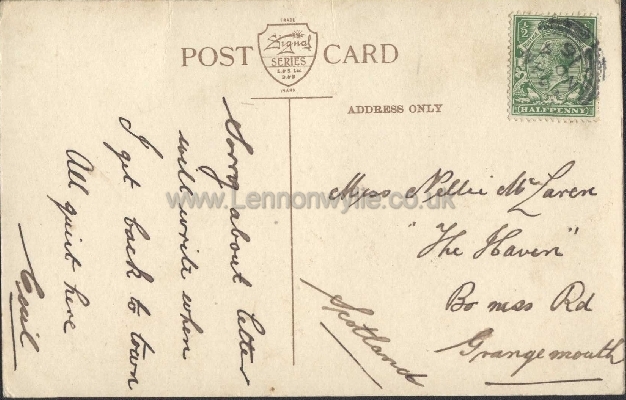 POST CARD
TRADE
Signal
SERIES
MARK
ADDRESS ONLY
½
HALFPENNY
Sorry about letter
will write when
I get back to town
All quiet here
Cecil
Miss Nellie McLaren
"The Haven"
Bo'ness Rd
Grangemouth
Scotland
www.Lennonwylie.co.uk